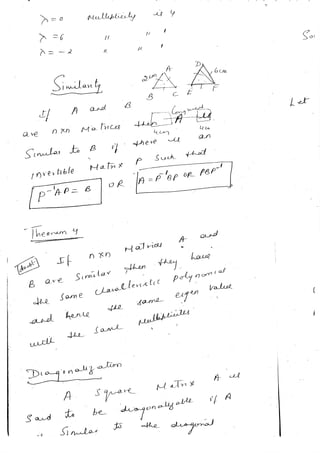 λ = 0 Multiplicity is 4
λ = 6 " " 1
λ = -2 " " 1
Similarity
A
D
2cm
6cm
B C E F
If A and B
are n×n Matrices then A is
4cm 4cm
Similar to B if there is an
invertible Matrix P such that
P⁻¹AP = B OR A = P⁻¹BP OR PBP⁻¹
Theorem 4
If n×n Matrices A and
B are Similar then they have
the same characteristic polynomial
and hence the same eigen value
with the same multiplicities
Diagonalization
A Square Matrix A is
Said to be diagonalizable if A
is Similar to the diagonal
Let